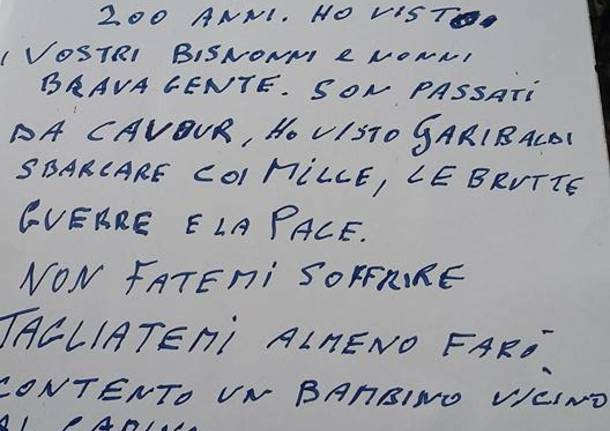 200 ANNI. HO VISTO
I VOSTRI BISNONNI E NONNI
BRAVA GENTE. SON PASSATI
DA CAVOUR, HO VISTO GARIBALDI
SBARCARE COI MILLE, LE BRUTTE
GUERRE E LA PACE.
NON FATEMI SOFFRIRE
TAGLIATEMI ALMENO FARÓ
CONTENTO UN BAMBINO VICINO